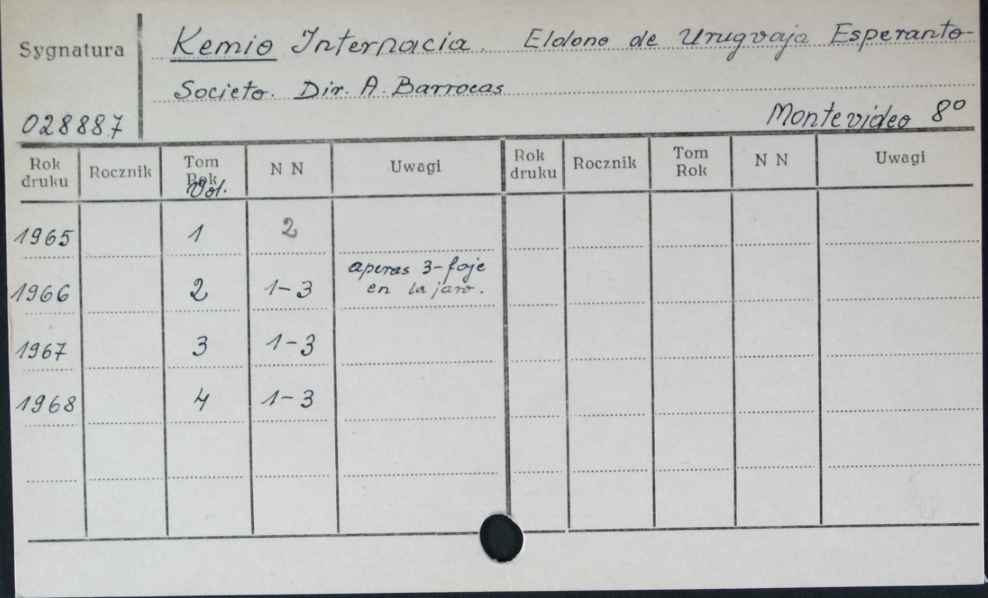 Sygnatura Kemio Internacia. Eldono de Urugvaja Esperanto-
Societo. Dir. A. Barrocas
028887 Montevideo 8°
Rok druku Rocznik Tom Rok Vol. N N Uwagi Rok druku Rocznik Tom Rok N N Uwagi
1965 1 2
1966 2 1-3 aperas 3-foje en la jaro.
1967 3 1-3
1968 4 1-3